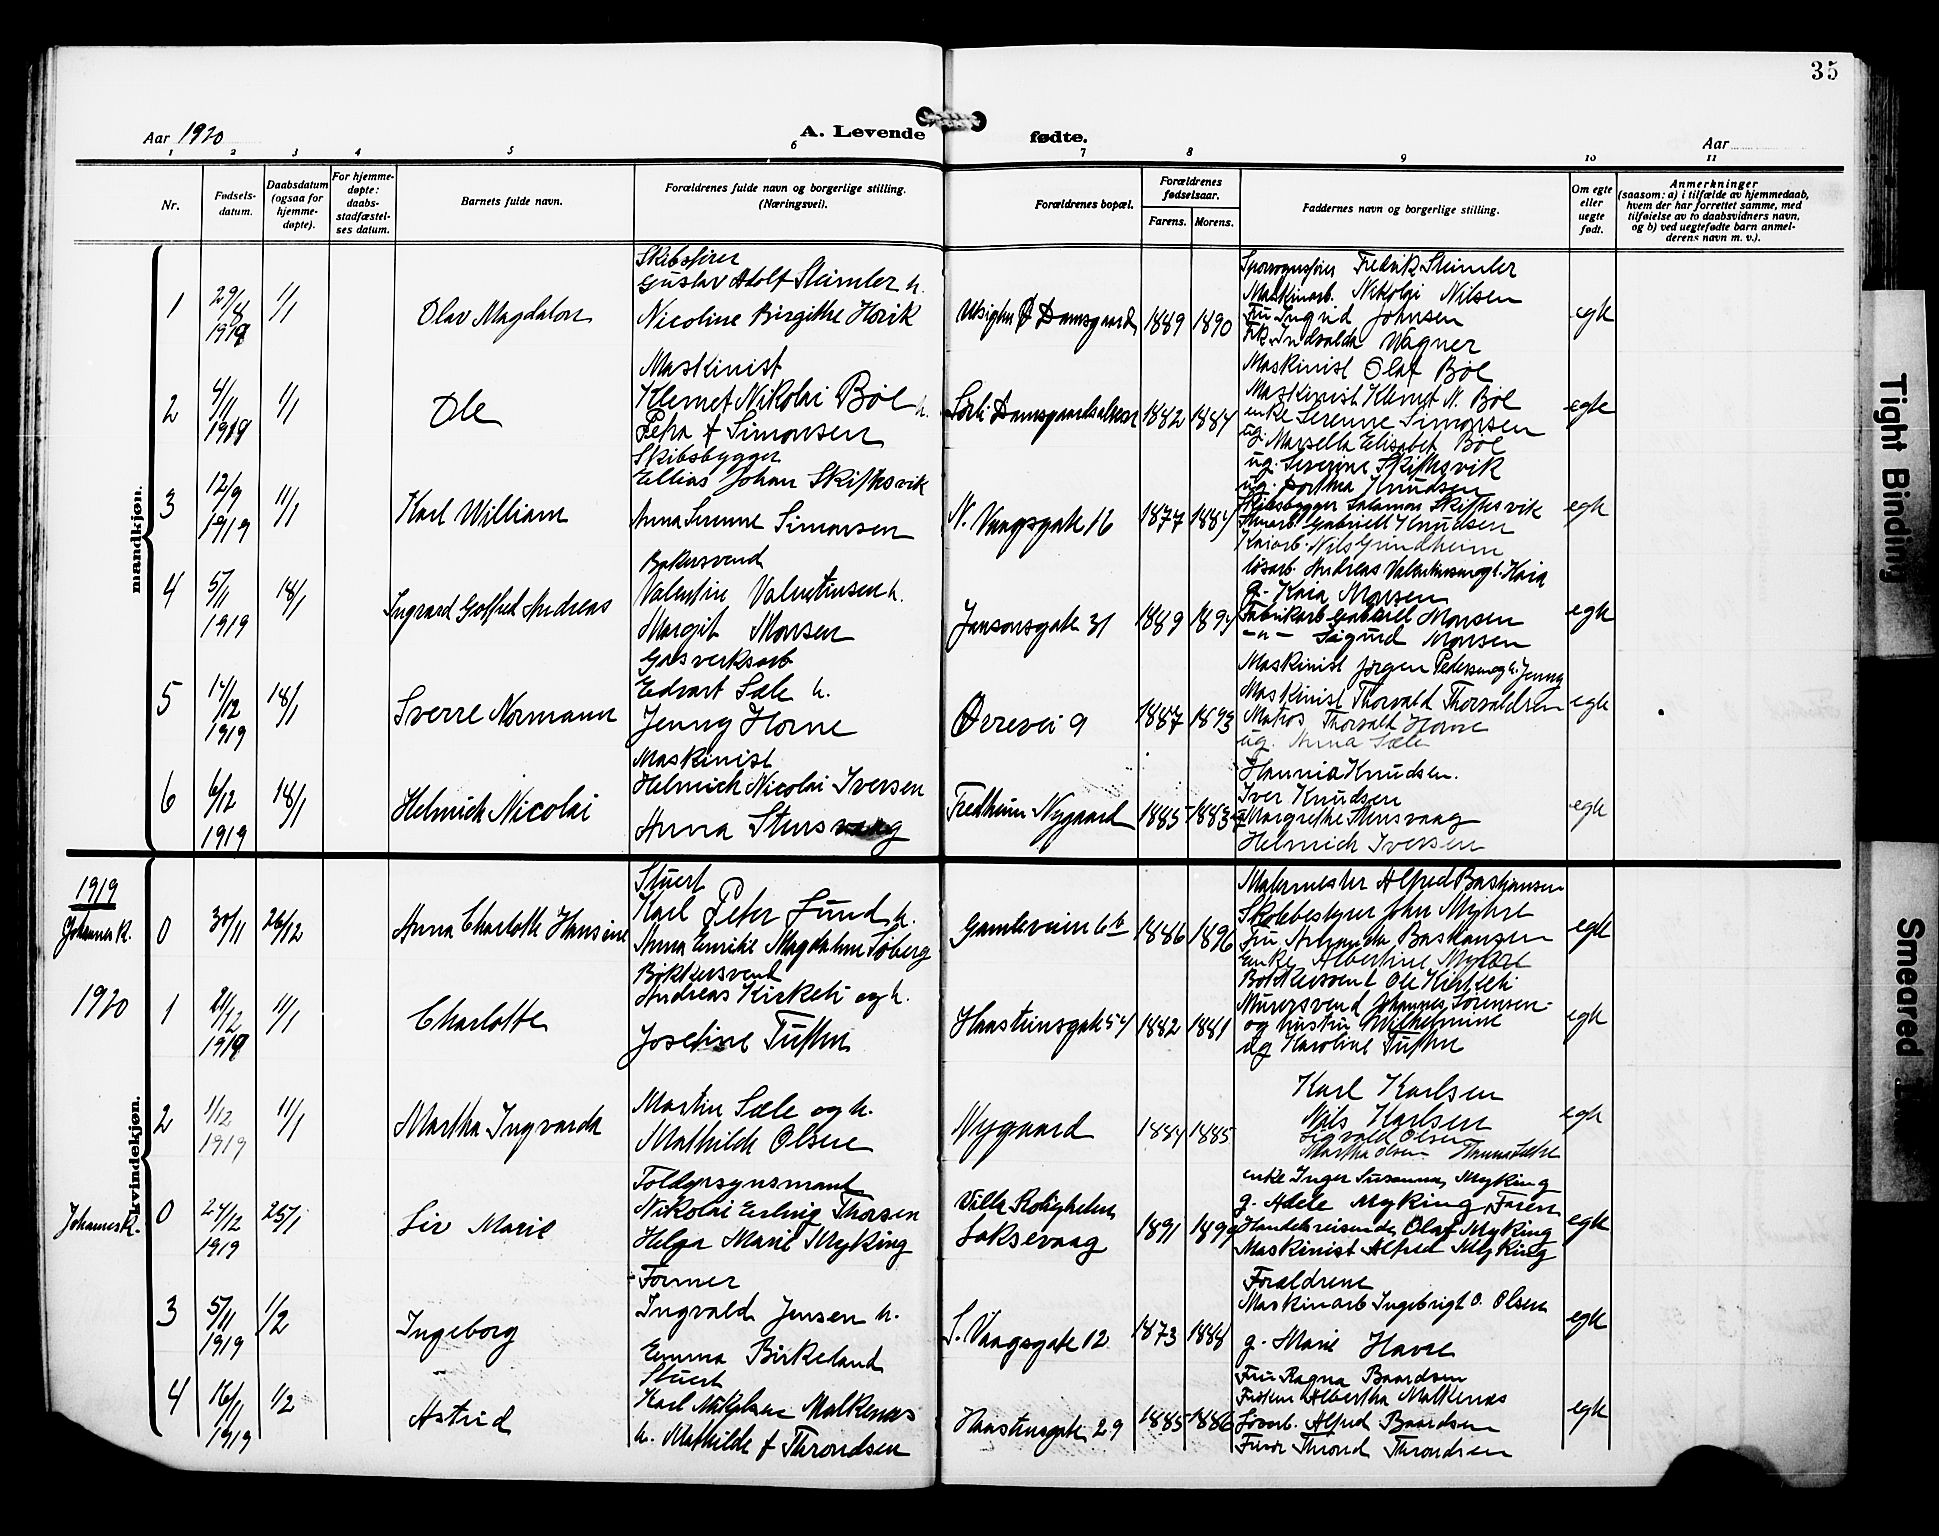 35
Aar 1920
A. Levende fødte.
Aar
1 2 3 4 5 6 7 8 9 10 11
Nr.
Fødsels-
datum.
Daabsdatum
(ogsaa for
hjemme-
døpte).
For hjemme-
døpte:
daabs-
stadfæstel-
ses datum.
Barnets fulde navn.
Forældrenes fulde navn og borgerlige stilling.
(Næringsvei).
Forældrenes bopæl.
Forældrenes
fødselsaar.
Farens. Morens.
Faddernes navn og borgerlige stilling.
Om egte
eller
uegte
født.
Anmerkninger
(saasom: a) i tilfælde av hjemmedaab,
hvem der har forrettet samme, med
tilføielse av to daabsvidners navn,
og b) ved uegtefødte barn anmel-
derens navn m. v.).
mandkjøn.
1
1919
1/1
Olav Magdalon
Skibsfører
Gustav Adolf Steimler h.
Nicoline Birgithe Horik
Damsgaard
1889 1890
Fredrik Steimler
Maskinarb. Nikolai Nilsen
Fru Ingrid Johnsen
Frk. Indvalda Wagner
egte
2
4/11
1919
1/1
Ole
Maskinist
Klemet Nikolai Böe h.
Petra f Simonsen
1882 1884
Maskinist Olaf Böe
Maskinist Klemet N. Böe
enke Serenne Simonsen
ug. Marsella Elisabet Böe
egte
3
12/9
1919
11/1
Karl William
Skibsbygger
Ellias Johan Skiftesvik
Anna Serenne Simonsen
N. Vaagsgate 16
1877 1884
ug. Severine Skiftesvik
ug. Dorthea Knudsen
Skibsbygger Salamon Skiftesvik
Gabriell Knudsen
Kaiarb. Nils Grindheim
egte
4
5/11
1919
18/1
Ingvard Gotfred Andreas
Bakersvend
Valentin Valentinsen h.
Margit Monsen
Jansonsgate 31
1889 1894
løsarb. Andreas Valentinsen og h. Kaia
g. Kaia Monsen
Fabrikarb Gabriell Monsen
-"- Sigurd Monsen
egte
5
14/12
1919
18/1
Sverre Normann
Gasverksarb
Edvart Sæle h.
Jenny Horne
Ørrevei 9
1887 1893
Maskinist Jørgen Pedersen og h. Jenny
Maskinist Thorvald Thorvaldsen
Matros Thorvald Horne
ug. Anna Sæle
egte
6
6/12
1919
18/1
Helmich Nicolai
Maskinist
Helmich Nicolai Iversen
Anna Stensvaag
Fredheim Nygaard
1885 1883
Hannia Knudsen.
Iver Knudsen
Margrethe Stensvaag
Helmich Iversen
egte
kvindekjøn.
1919
Johannes K.
0
30/11
26/12
Anna Charlotte Hansine
Stuert
Karl Peter Lund h.
Anna Emilie Magdalene Söberg
Gamleveien 6b
1886 1896
Malermester Alfred Bastiansen
Skolebestyrer John Myhre
Fru Amanda Bastiansen
Enke Albertine Myhre
egte
1920
1
21/12
1919
11/1
Charlotte
Bökkersvend
Andreas Kirkeli og h.
Josefine Tuften
Haasteinsgate 54
1882 1881
Bökkersvend Ole Kirkeli
Murersvend Johannes Sörensen
og hustru Wilhelmine
ug Karoline Tuften
egte
2
1/12
1919
11/1
Martha Ingvarda
Martin Sæle og h.
Mathilde Olsen
Nygaard
1884 1885
Karl Karlsen
Nils Karlsen
Sigvald Olsen
Martha Olsen Hanna Sæle
egte
Johannes K.
0
24/12
1919
25/1
Liv Marie
Toldopsynsmand
Nikolai Erling Thorsen
Helga Marie Myking
Villa Roligheten
Laksevaag
1891 1899
enke Inger Susanna Myking
g. Adele Myking, Faren
Handelsreisende Olaf Myking
Maskinist Alfred Myking
egte
3
5/11
1919
1/2
Ingeborg
Former
Ingvald Jensen h.
Emma Birkeland
S. Vaagsgate 12
1873 1888
Forældrene
Maskinarb Ingebrigt O. Olsen
g. Marie Havre
egte
4
16/11
1919
1/2
Astrid
Stuert
Karl Malkenes
h. Mathilde f Throndsen
Haasteinsgate 29
1885 1886
Fru Ragna Baardsen
Frøken Albertha Malkenes
Løsarb. Alfred Baardsen
Thrond Throndsen
egte
Tight Binding
Smeared